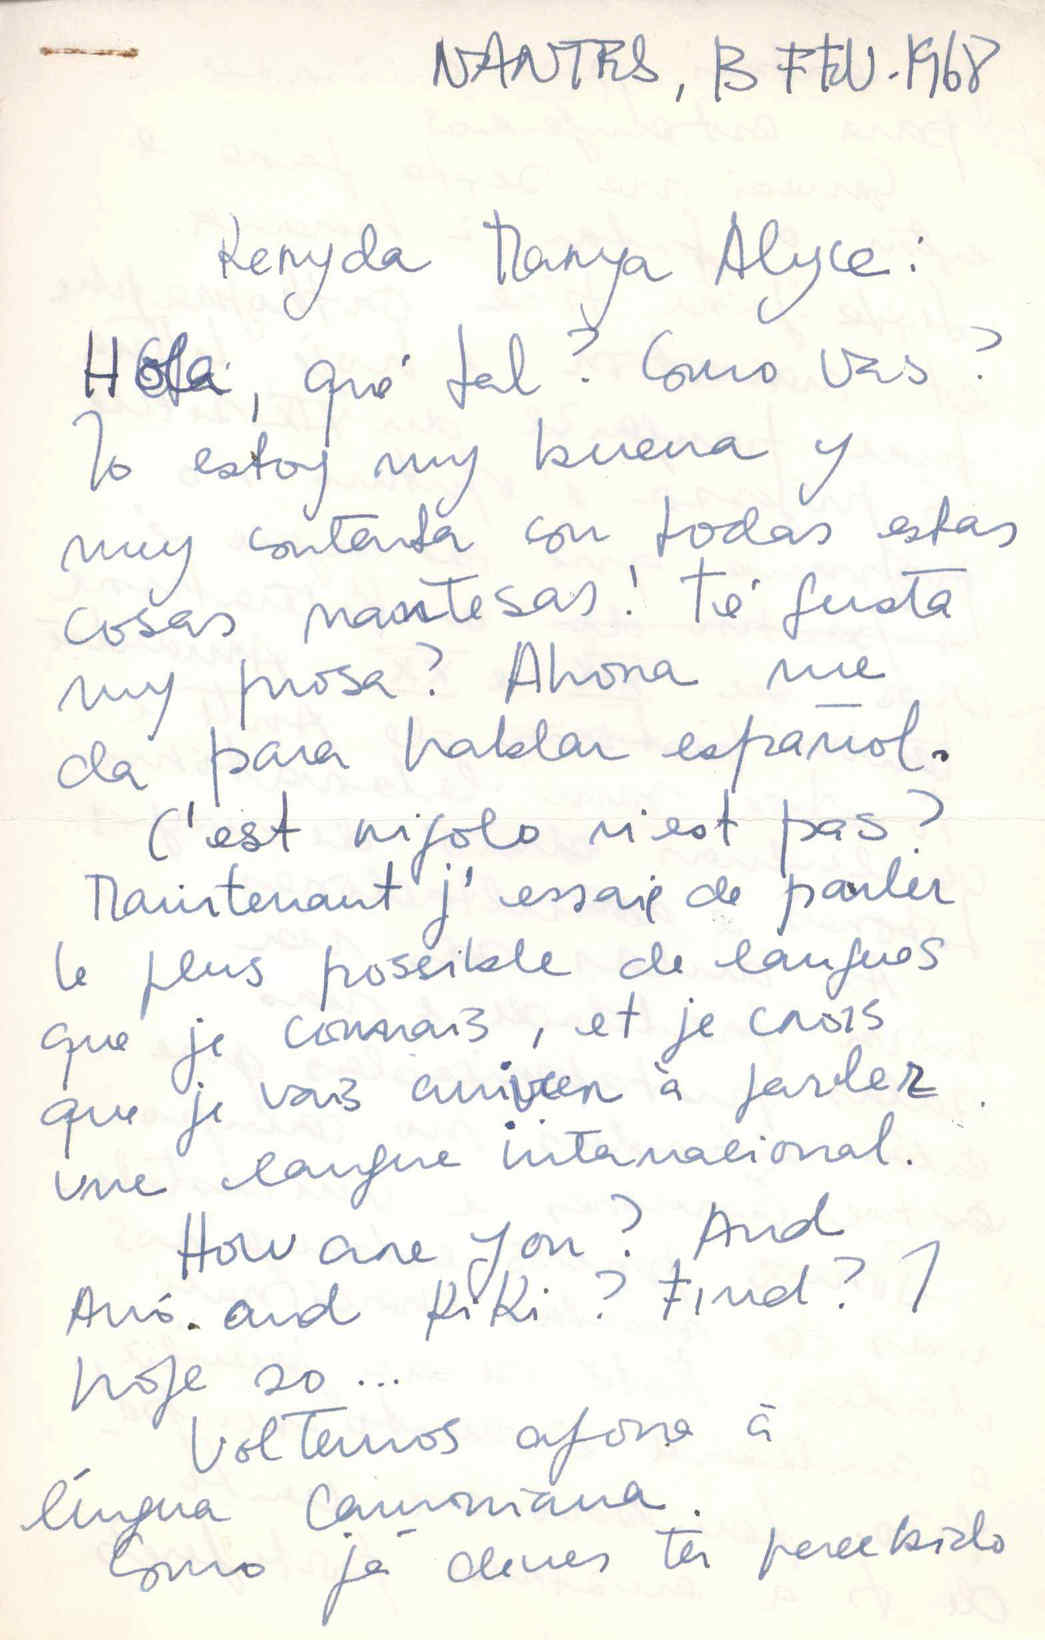 NANTES, 13 FEV. 1968
Keryda Marya Alyce:
Hola, qué tal? Como vas?
Yo estoy muy buena y
muy contenta con todas estas
cosas nantesas! Té gusta
my prosa? Ahora me
da para hablar español.
C'est rigolo n'est pas?
Maintenant j'essaie de parler
le plus possible de langues
que je connais, et je crois
que je vais arriver à parler
une langue internacional.
How are you? And
Anó. and Kiki? Find? I
hope so...
Voltemos agora à
língua camoniana.
Como já deves ter percebido